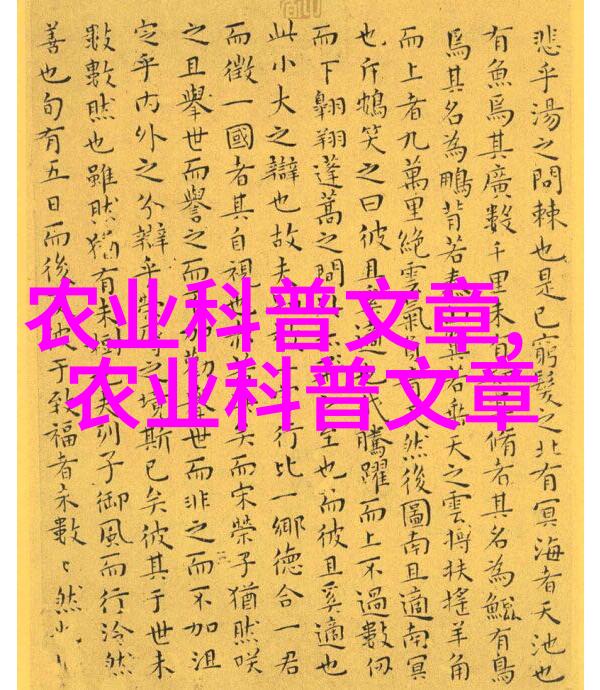 農业科普文章,
农业科普文章
悲乎湯之問棘也是已窮髮之北有冥海者天池也
有魚焉其廣數千里未有脩者其名為鯤有鳥
焉其名為鵬背若泰山其若垂天之雲摶扶搖羊角
而上者九萬里絕雲氣負青天然後圖南且適南冥
也斥鴳笑之曰彼且奚適也我騰躍而上不過數仞
而下翱翔蓬蒿之間至也而彼且奚適也
此小大之辯也故夫行比一鄉德合一君
而徵一國者其自視也亦矣而宋榮子猶然咲
之且舉世而譽之而不加勸舉世而非之而不加沮
定乎內外之分辯乎榮辱之境斯已矣彼其于世未
數數然也雖然猶有未樹也夫列子御風而行泠然
善也旬有五日而後彼于致福者未數〻然也